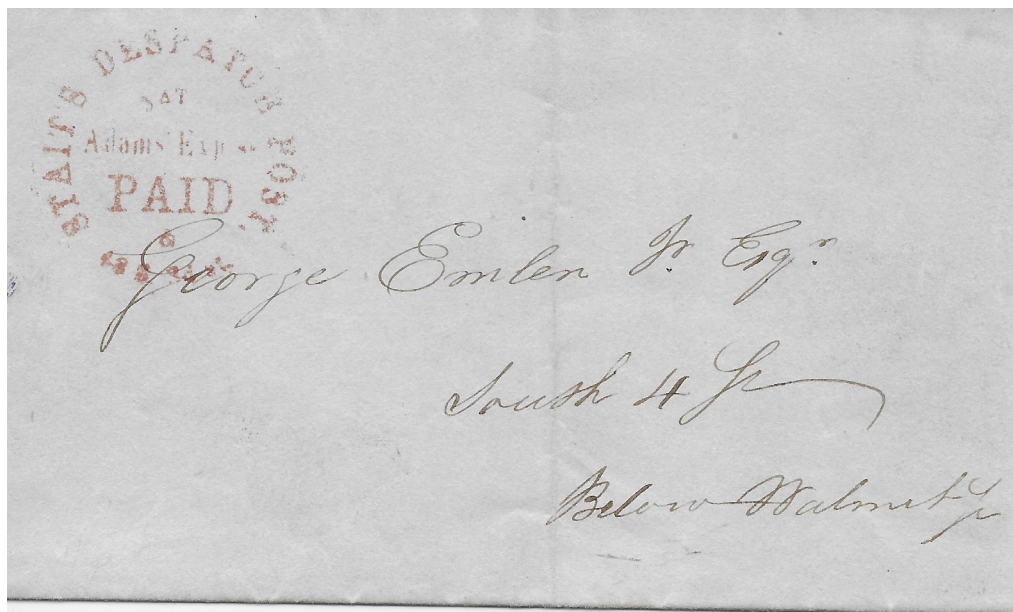 STAIT'S DESPATCH POST.
AT
Adams' Exp
PAID
George Emlen Jr. Esqr.
South 4 St
Below Walnut St